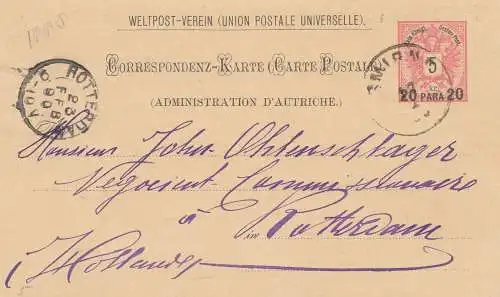 WELTPOST-VEREIN (UNION POSTALE UNIVERSELLE).
CORRESPONDENZ-KARTE (CARTE POSTALE
(ADMINISTRATION D'AUTRICHE).
5
20 PARA 20
ROTTERDAM
23
FEB
90
Monsieur John Ohlenschlager
Negocient-Commissionaire
à
Rotterdam
Hollande